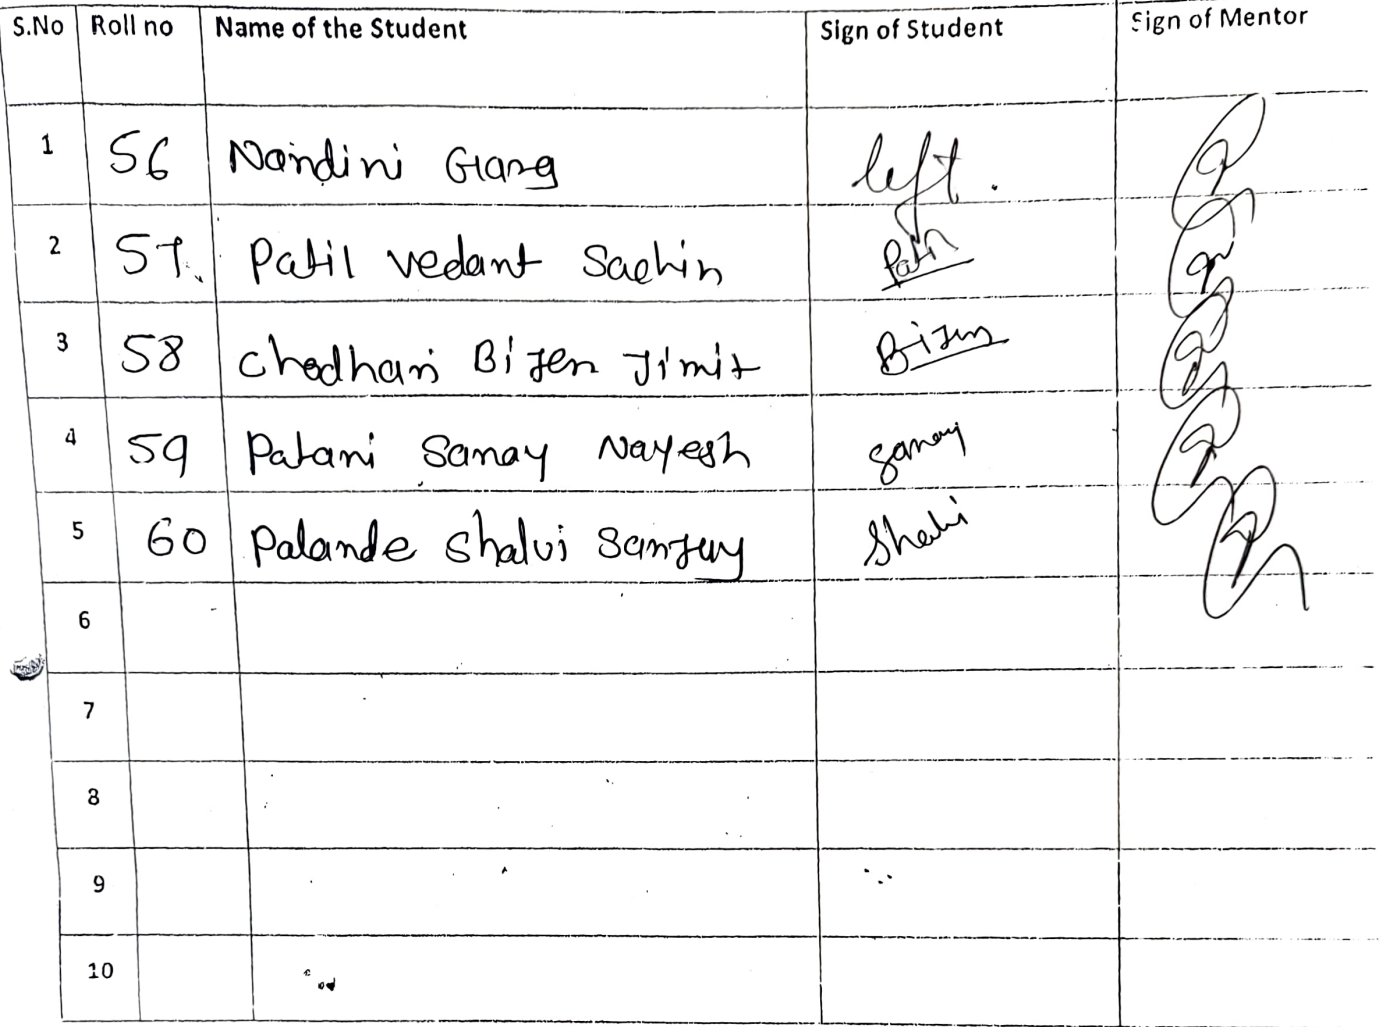 S.No Roll no Name of the Student Sign of Student Sign of Mentor
1 56 Nandini Garg left.
2 57. Patil vedant Sachin Patil
3 58 Chodhari Bijen Jimit Bijen
4 59 Patani Sanay Nayesh Sanay
5 60 Palande Shalvi Sanjay Shalvi
6
7
8
9
10